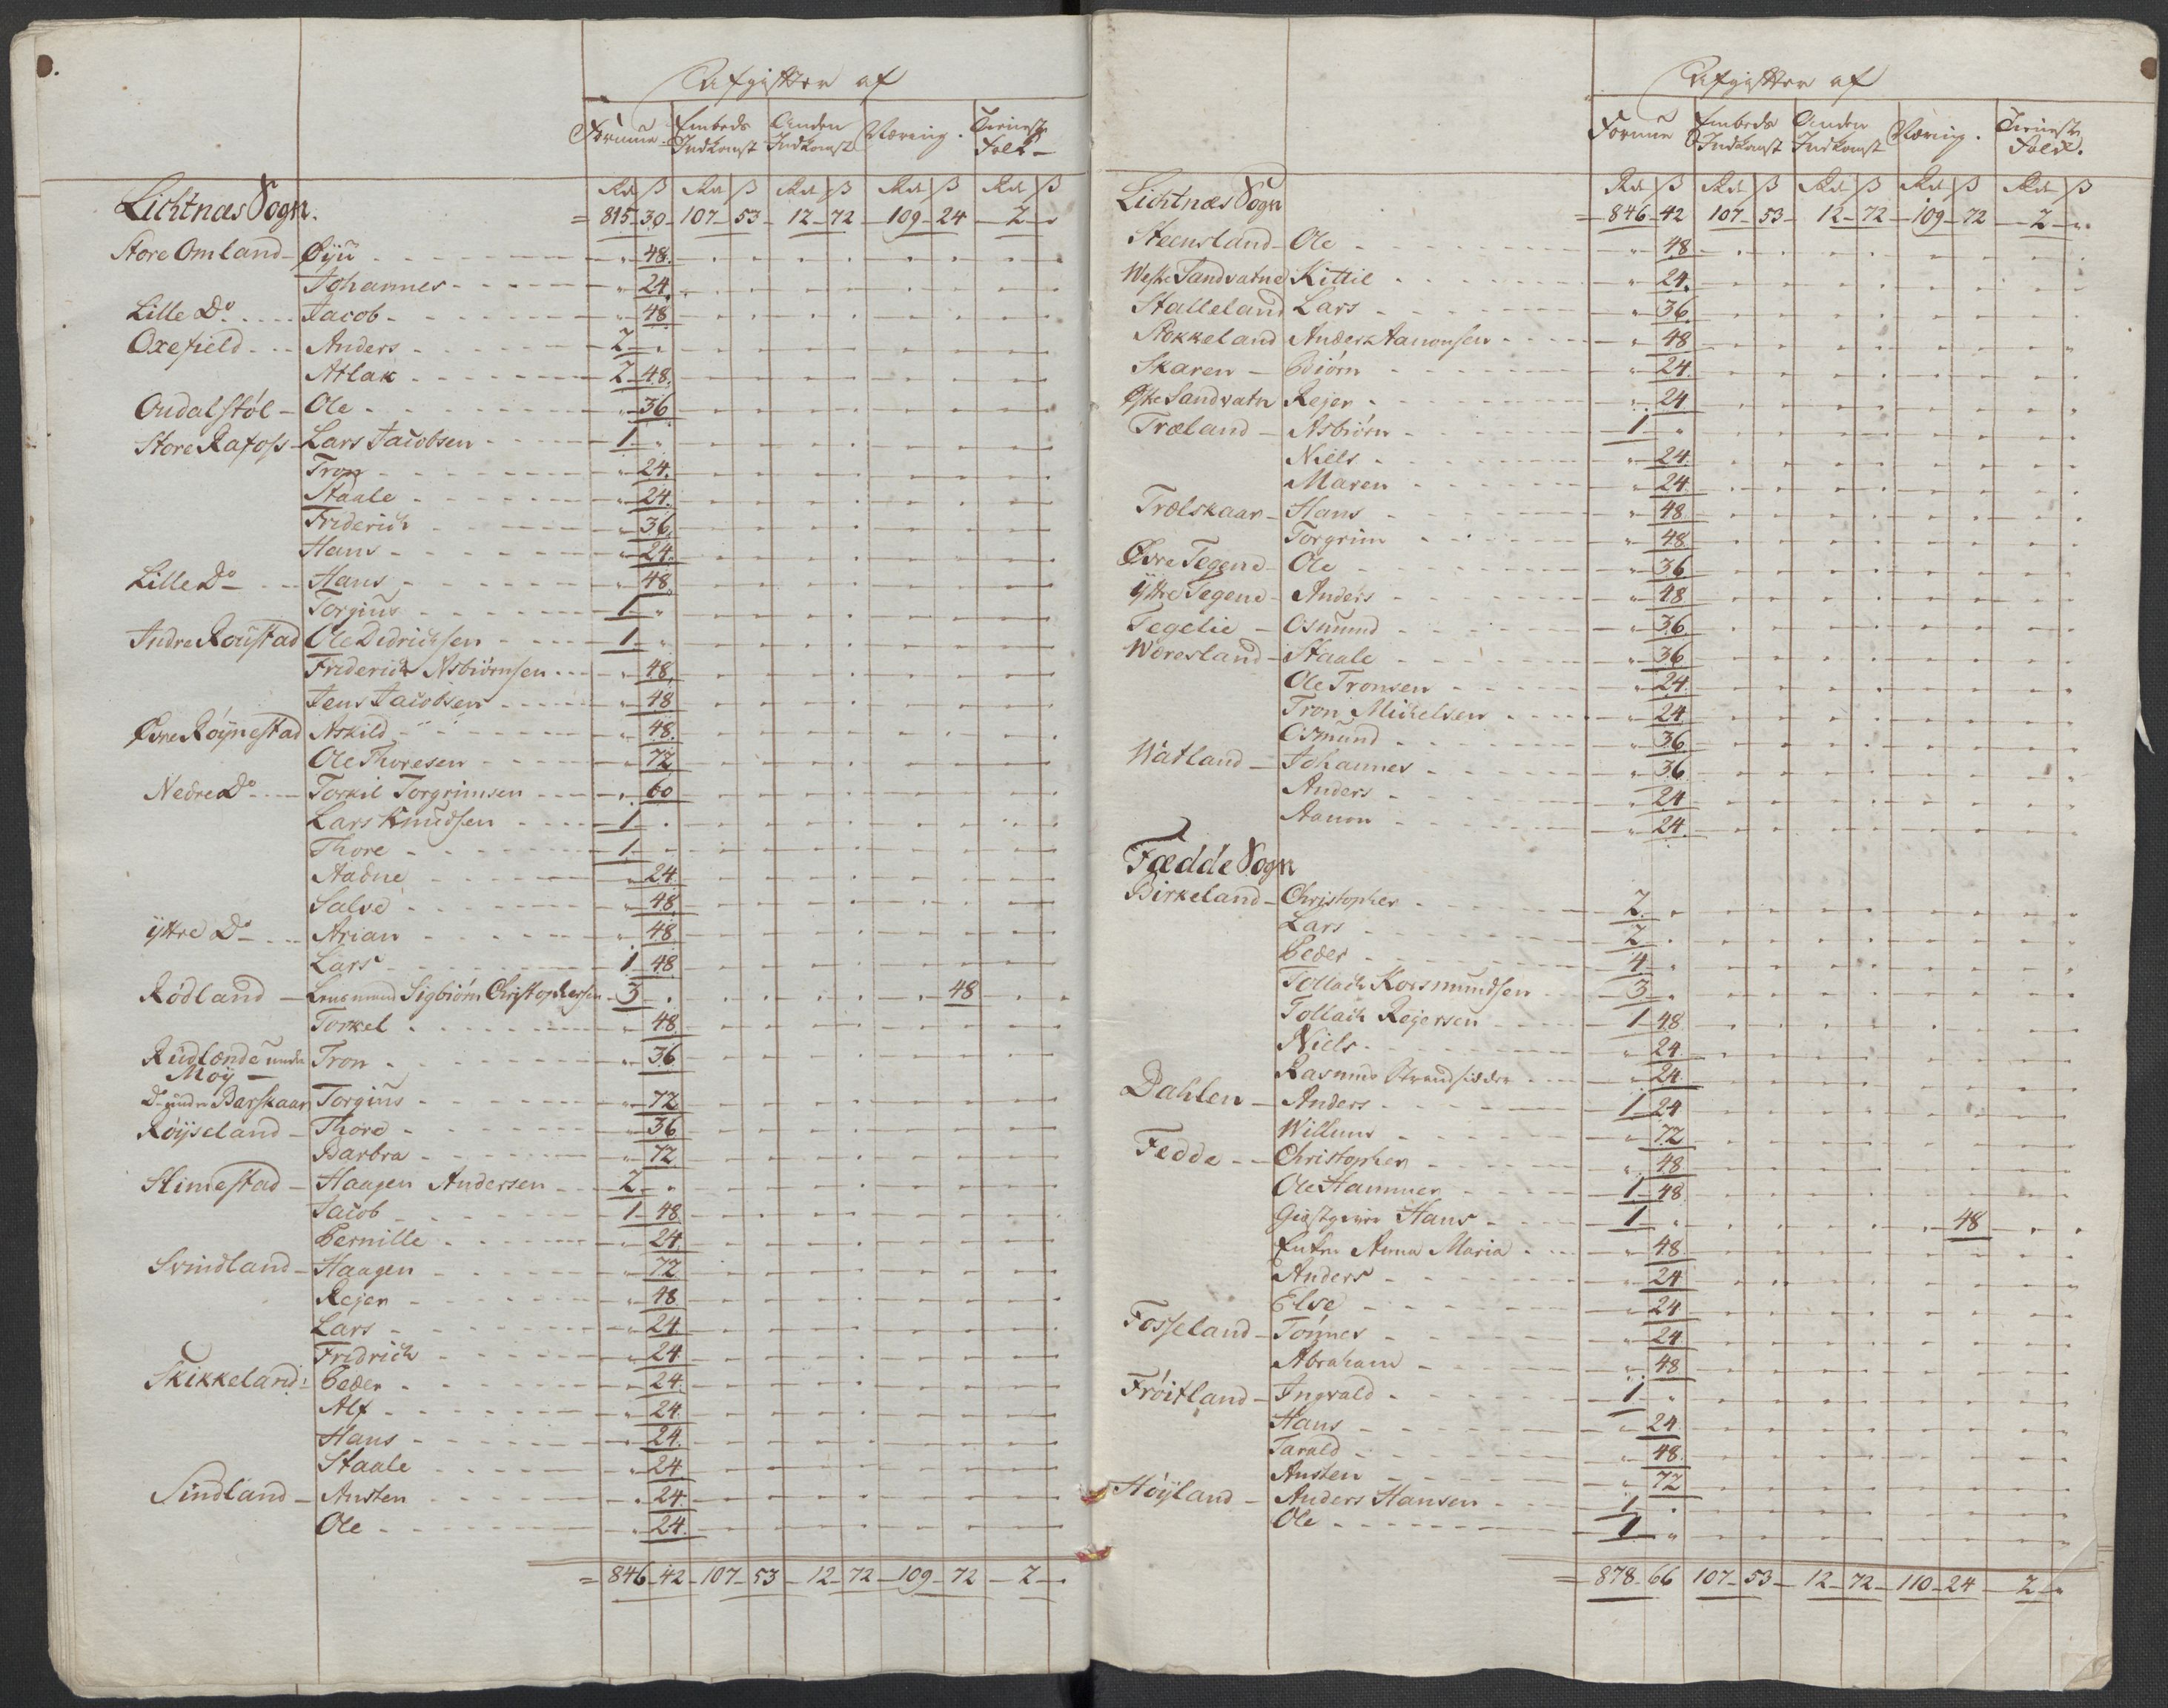 Afgifter af
Formue. Embeds Indkomst Anden Indkomst Næring. Tieneste Folk
Rd ß Rd ß Rd ß Rd ß Rd ß
Lichtnæs Sogn. = 815 - 30 - 107 - 53 - 12 - 72 - 109 - 24 - 2 - "
Store Omland - Øyü - " - 48.
Johannes - " - 24.
Lille Do - Jacob - " - 48
Oxefield - Anders - 2 - "
Atlak - 2 - 48.
Oudalstøl - Ole - " - 36
Store Rafoss - Lars Jacobsen - 1 - "
Tron - " - 24.
Staale - " - 24.
Friderich - " - 36.
Hans - " - 24.
Lille Do - Hans - " - 48.
Torgius - 1 - "
Indre Roustad Ole Didrichsen - 1 - "
Friderich Asbiørnsen - " - 48.
Jens Jacobsen - " - 48
Øvre Røynestad Askild - " - 48.
Ole Thoresen - " - 72
Nedre Do - Torkil Torgrimsen - " - 60
Lars Knudsen - 1 - "
Thore - 1 - "
Aadne - " - 24.
Salve - " - 48.
ÿttre Do - Arian - " - 48
Lars - 1 - 48
Rødland - Lensmand Sigbiørn Christophersen - 3 - " 48
Torkel - " - 48.
Rüdlænde under Moÿ - Tron - " - 36
Do under Barskaar Torgius - " - 72
Røÿseland - Thore - " - 36
Barbra - " - 72
Slimestad - Haagen Andersen - 2 - "
Jacob - 1 - 48.
Pernille - " - 24.
Svindland - Haagen - " - 72
Rejer - " - 48.
Lars - " - 24.
Fridrich - " - 24.
Skikkeland - Peder - " - 24.
Alf - " - 24.
Hans - " - 24.
Staale - " - 24.
Sindland - Austen - " - 24.
Ole - " - 24.
= 846 - 42 - 107 - 53 - 12 - 72 - 109 - 72 - 2 - "
Afgifter af
Formue Embeds Indkomst Anden Indkomst Næring. Tieneste Folk.
Rd ß Rd ß Rd ß Rd ß Rd ß
Lichtnæs Sogn = 846 - 42 107 - 53 - 12 - 72 - 109 - 72 - 2 - "
Steensland - Ole - " - 48
Westre Sandvatne Kittil - " - 24.
Stalleland Lars - " - 36.
Stokkeland Anders Aanonsen - " - 48
Skaren - Biørn - " - 24.
Østre Sandvatn Rejer - " - 24
Træland - Asbiørn - 1 - "
Niels - " - 24.
Maren - " - 24.
Trælskaar - Hans - " - 48.
Torgrim - " - 48.
Øvre Tegene - Ole - " - 36.
ÿttre Tegene - Anders - " - 48
Tegelie - Osmund - " - 36.
Woresland - Staale - " - 36
Ole Tronsen - " - 24.
Tron Michelsen - " - 24
Osmund - " - 36.
Watland - Johannes - " - 36.
Anders - " - 24
Aanon - " - 24.
Fædde Sogn
Birkeland - Christopher - 2 - "
Lars - 2 - "
Peder - 4 - "
Tollach Rorsmundsen - 3 - "
Tollach Rejersen - 1 - 48.
Niels - " - 24.
Rasmus Strandsidder - " - 24.
Dahlen - Anders - 1 - 24
Willum - " - 72
Fedde - Christopher - " - 48
Ole Hammer - 1 - 48
Giæstgiver Hans - 1 - " 48
Enke Anna Maria - " - 48
Anders - " - 24
Else - " - 24
Fosseland - Tønnes - " - 24.
Abraham - " - 48
Frøitland - Ingvald - 1 - "
Hans - " - 24.
Tarald - " - 48.
Austen - " - 72
Høÿland - Anders Hansen - 1 - "
Ole - 1 - "
= 878 - 66 107 - 53 - 12 - 72 - 110 - 24 - 2 - "